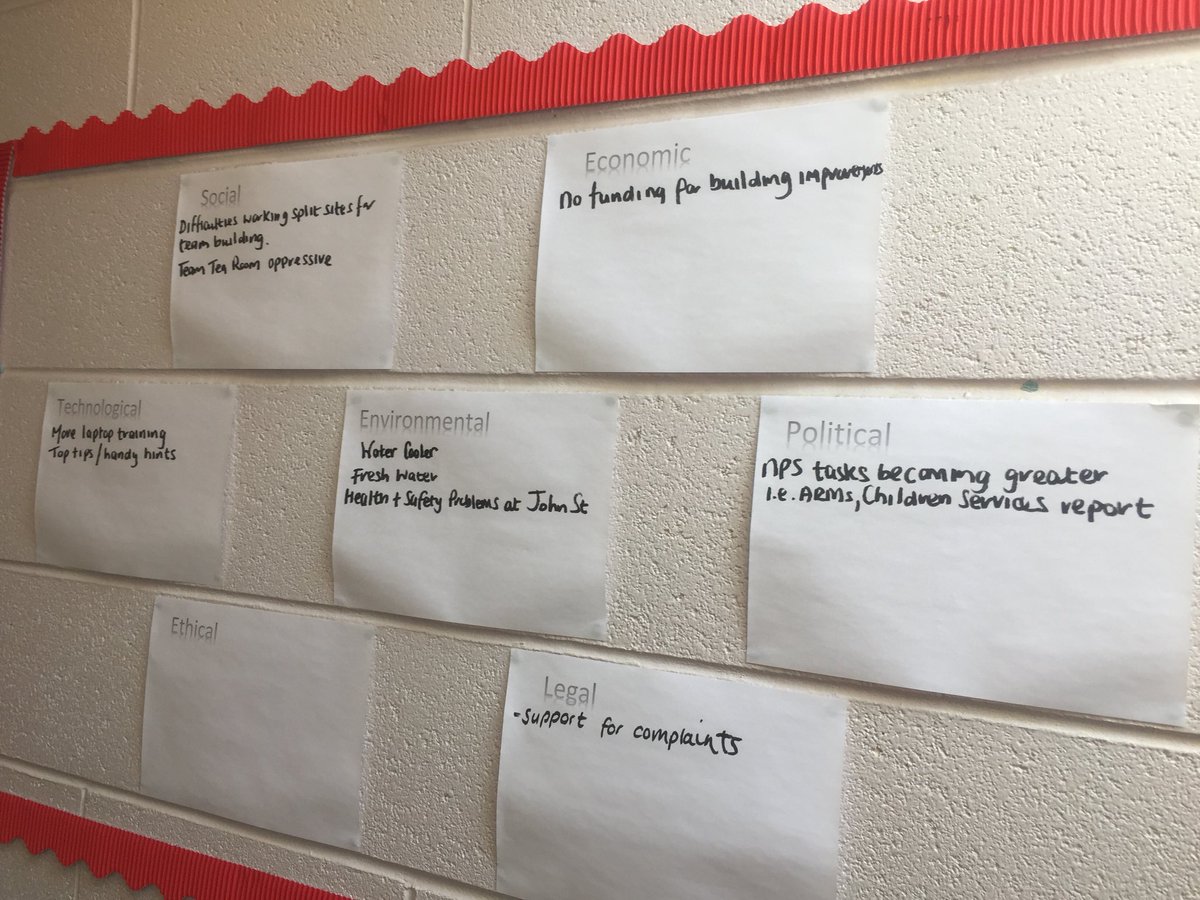 Social
Difficulties working split sites for
team building.
Team Tea Room oppressive
Economic
No funding for building improvements
Technological
More laptop training
Top tips/handy hints
Environmental
Water Cooler
Fresh Water
Health + Safety Problems at John St
Political
NPS tasks becoming greater
i.e. ARMs, Children Services report
Ethical
Legal
-support for complaints